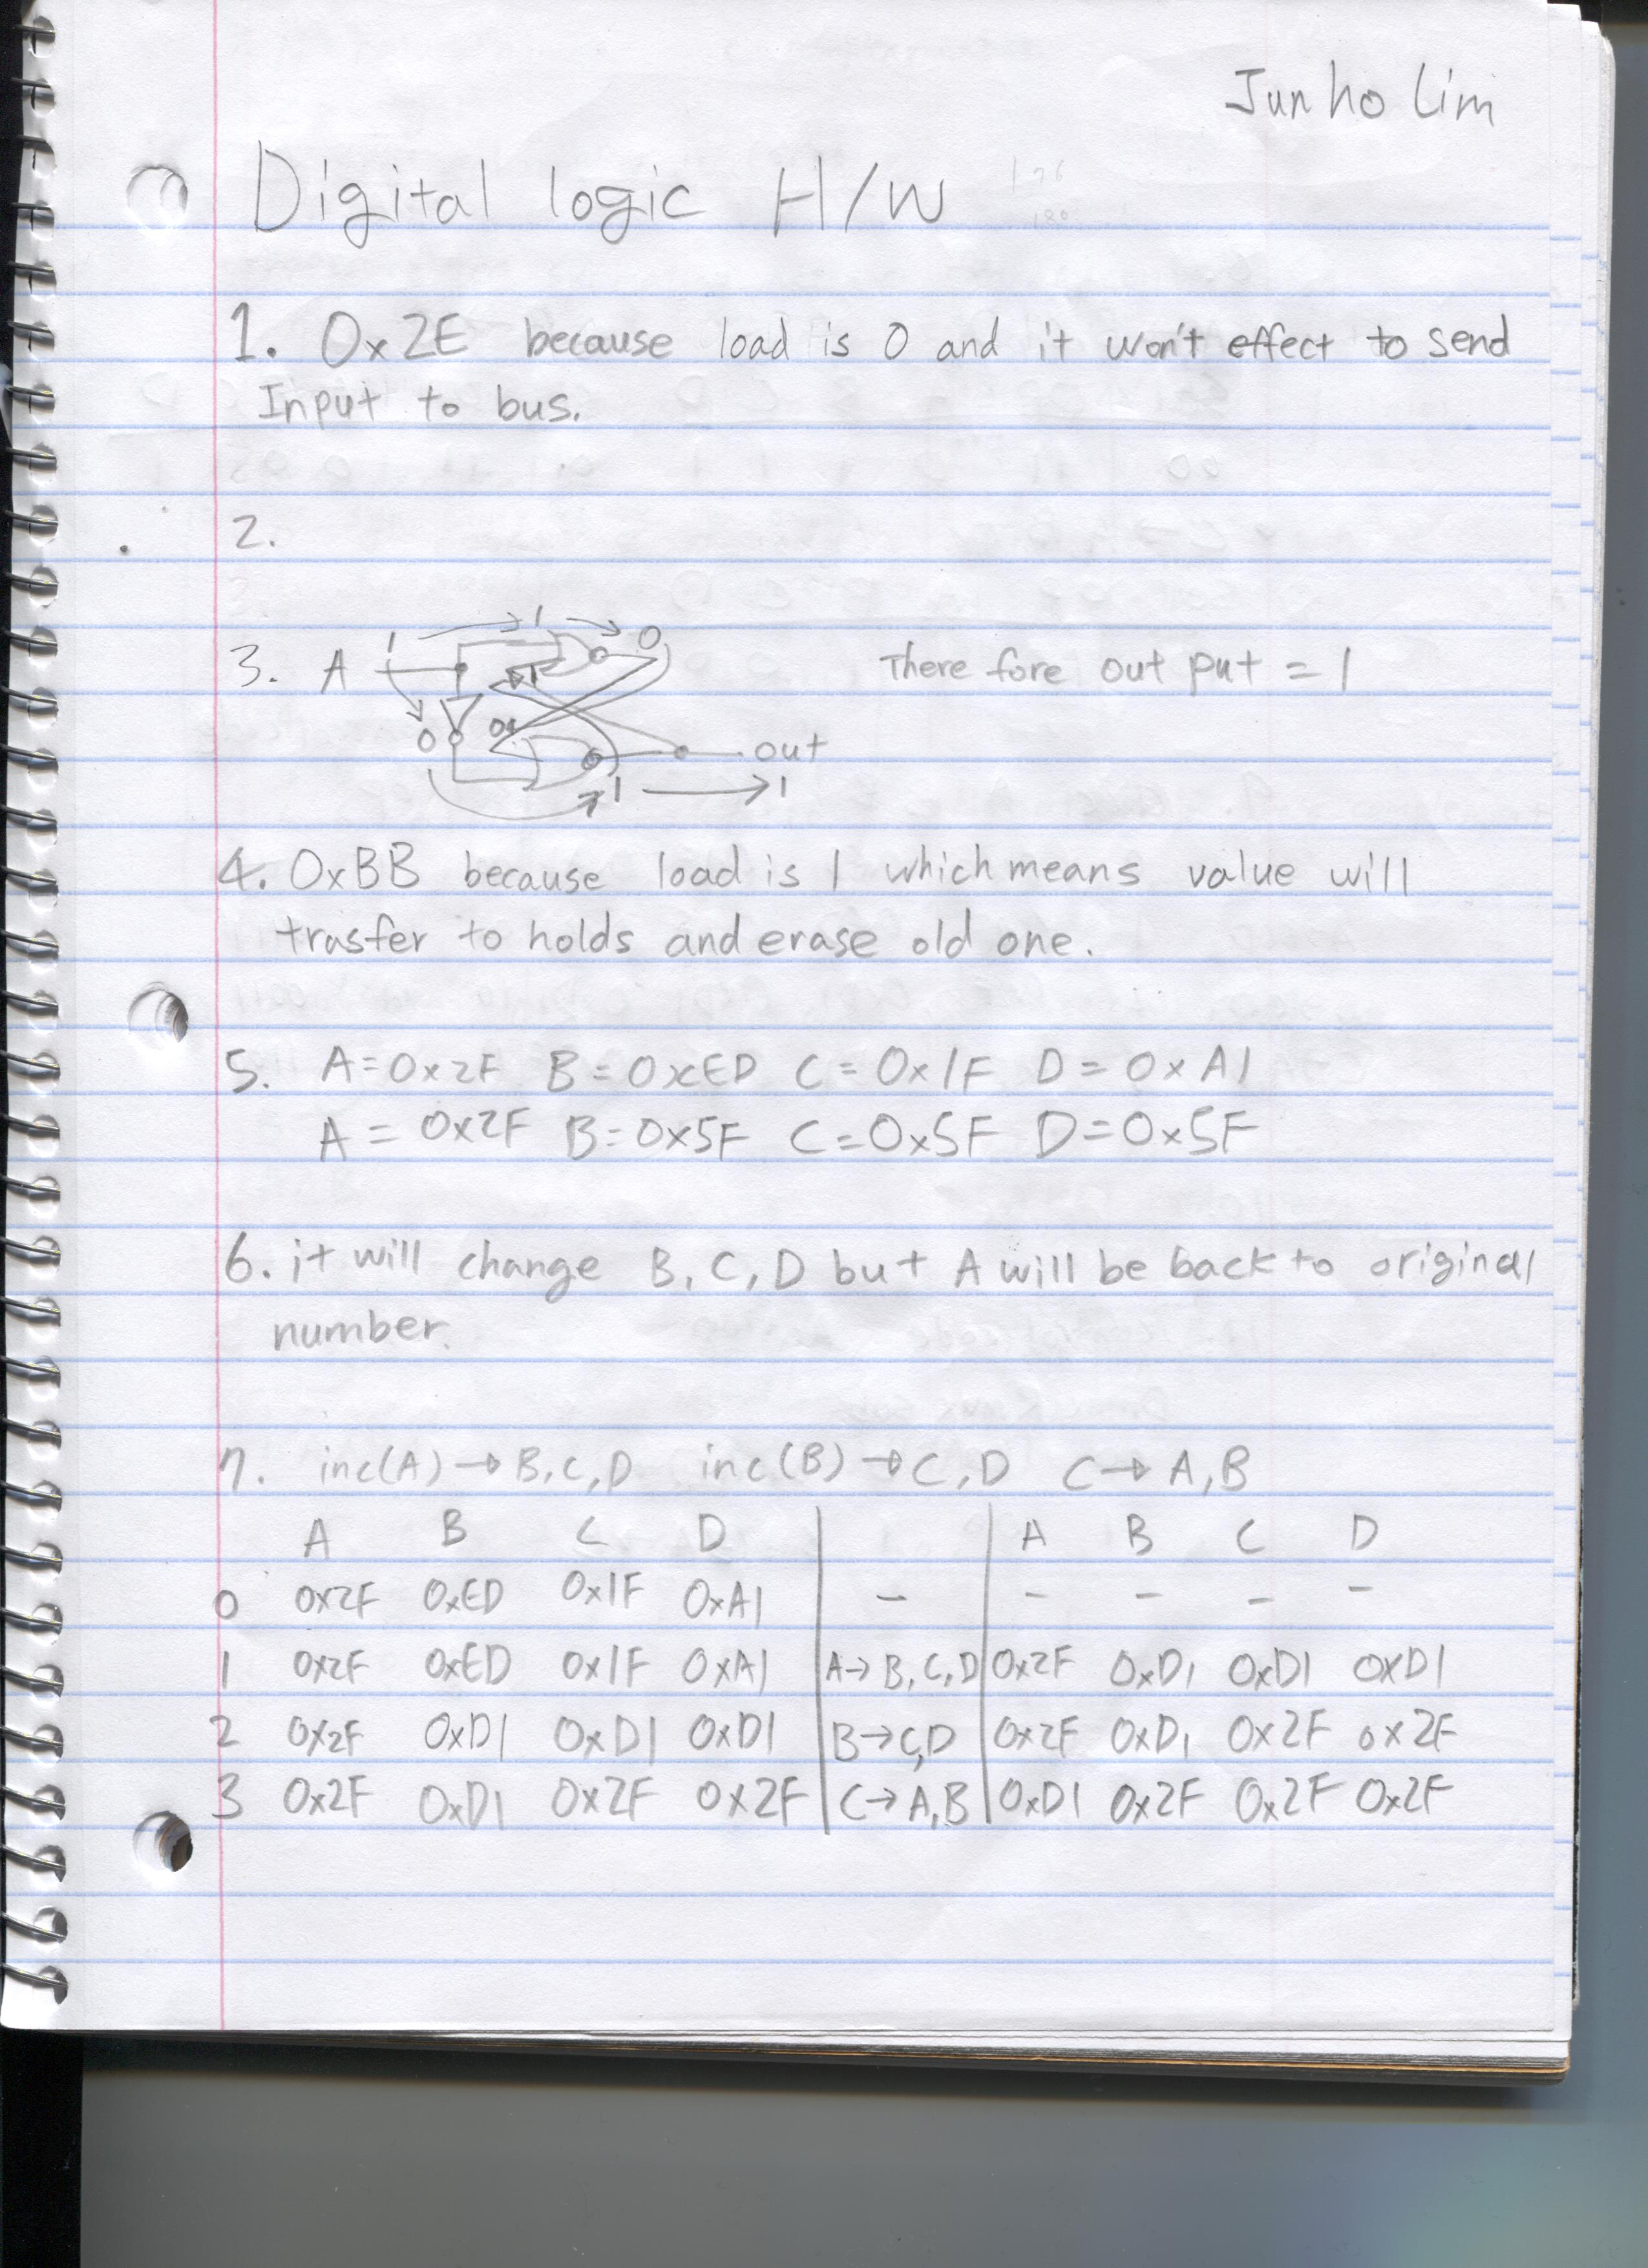 Junho Lim
Digital logic H/W
1. 0x2E because load is 0 and it won't effect to send
Input to bus.
2.
3. A 1 1 0 There fore out put = 1
0 out
1 1
4. 0xBB because load is 1 which means value will
trasfer to holds and erase old one.
5. A=0x2F B=0xED C=0x1F D=0xA1
A=0x2F B=0x5F C=0x5F D=0x5F
6. it will change B, C, D but A will be back to original
number.
7. inc(A)→B,C,D inc(B)→C,D C→A,B
A B C D A B C D
0 0x2F 0xED 0x1F 0xA1 - - - - -
1 0x2F 0xED 0x1F 0xA1 A→B,C,D 0x2F 0xD1 0xD1 0xD1
2 0x2F 0xD1 0xD1 0xD1 B→C,D 0x2F 0xD1 0x2F 0x2F
3 0x2F 0xD1 0x2F 0x2F C→A,B 0xD1 0x2F 0x2F 0x2F